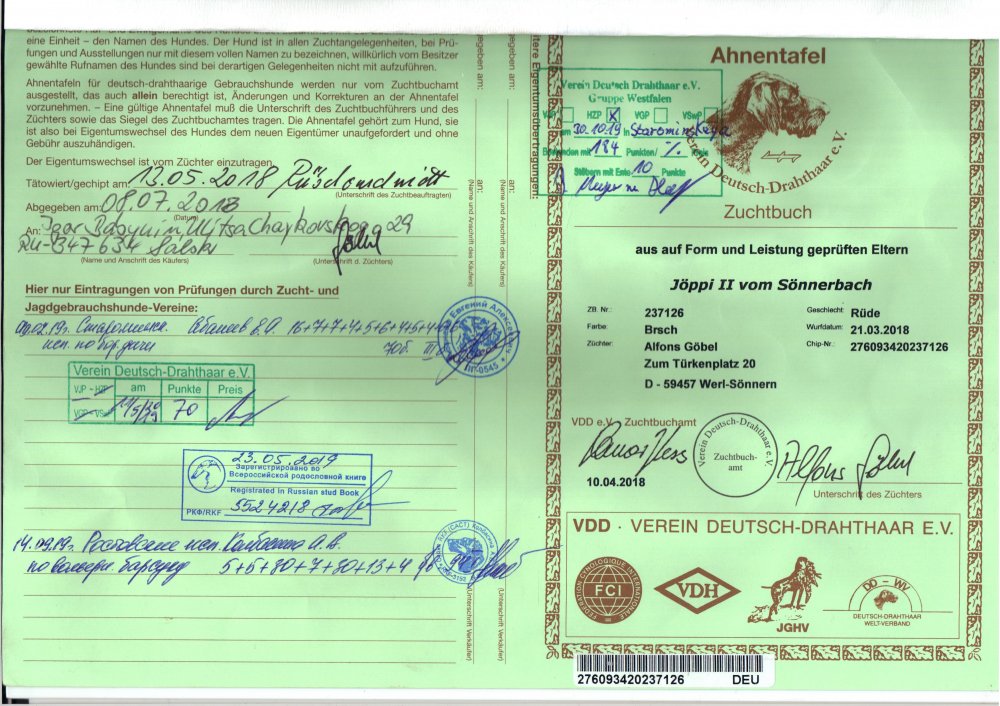 eine Einheit – den Namen des Hundes. Der Hund ist in allen Zuchtangelegenheiten, bei Prü-
fungen und Ausstellungen nur mit diesem vollen Namen zu bezeichnen, willkürlich vom Besitzer
gewählte Rufnamen des Hundes sind bei derartigen Gelegenheiten nicht mit aufzuführen.
Ahnentafeln für deutsch-drahthaarige Gebrauchshunde werden nur vom Zuchtbuchamt
ausgestellt, das auch allein berechtigt ist, Änderungen und Korrekturen an der Ahnentafel
vorzunehmen. – Eine gültige Ahnentafel muß die Unterschrift des Zuchtbuchführers und des
Züchters sowie das Siegel des Zuchtbuchamtes tragen. Die Ahnentafel gehört zum Hund, sie
ist also bei Eigentumswechsel des Hundes dem neuen Eigentümer unaufgefordert und ohne
Gebühr auszuhändigen.
Der Eigentumswechsel ist vom Züchter einzutragen.
Tätowiert/gechipt am: 13.05.2018
(Unterschrift des Zuchtbeauftragten)
Abgegeben am: 08.07.2018
(Datum)
An: Igor
RU-347634 Salsk
(Name und Anschrift des Käufers)
(Unterschrift d. Züchters)
Hier nur Eintragungen von Prüfungen durch Zucht- und
Jagdgebrauchshunde-Vereine:
16+7+7+4+5+6+4+5+4+
70б. III
Verein Deutsch-Drahthaar e.V.
VJP – HZP
am
Punkte
Preis
VGP – VSwP
70
23.05.2019
Зарегистрировано во
Всероссийской родословной книге
Registered in Russian stud Book
РКФ/RKF 5524218
14.09.19г. Ростовские исп.
по вольерн. барсуку 5+5+20+7+20+13+4
egeben am:
egeben am:
an:
an:
(Name und Anschrift des Käufers)
(Name und Anschrift des Käufers)
(Unterschrift Verkäufer)
(Unterschrift Verkäufer)
eitere Eigentumsübertragungen:
Ahnentafel
Verein Deutsch-Drahthaar e.V.
Gruppe Westfalen
HZP X
VGP
VSwP
am 30.10.19 in
184 Punkten/
Stöbern mit Ente 10 Punkte
Verein Deutsch-Drahthaar e.V.
Zuchtbuch
aus auf Form und Leistung geprüften Eltern
Jöppi II vom Sönnerbach
ZB. Nr.: 237126 Geschlecht: Rüde
Farbe: Brsch Wurfdatum: 21.03.2018
Züchter: Alfons Göbel Chip-Nr.: 276093420237126
Zum Türkenplatz 20
D - 59457 Werl-Sönnern
VDD e.V. Zuchtbuchamt
Verein Deutsch-Drahthaar e.V.
Zuchtbuch-
amt
Alfons Göbel
10.04.2018
Unterschrift des Züchters
VDD · VEREIN DEUTSCH-DRAHTHAAR E.V.
FEDERATION CYNOLOGIQUE INTERNATIONALE
FCI
VDH
JGHV
DD - WV
DEUTSCH-DRAHTHAAR
WELT-VERBAND
276093420237126 DEU